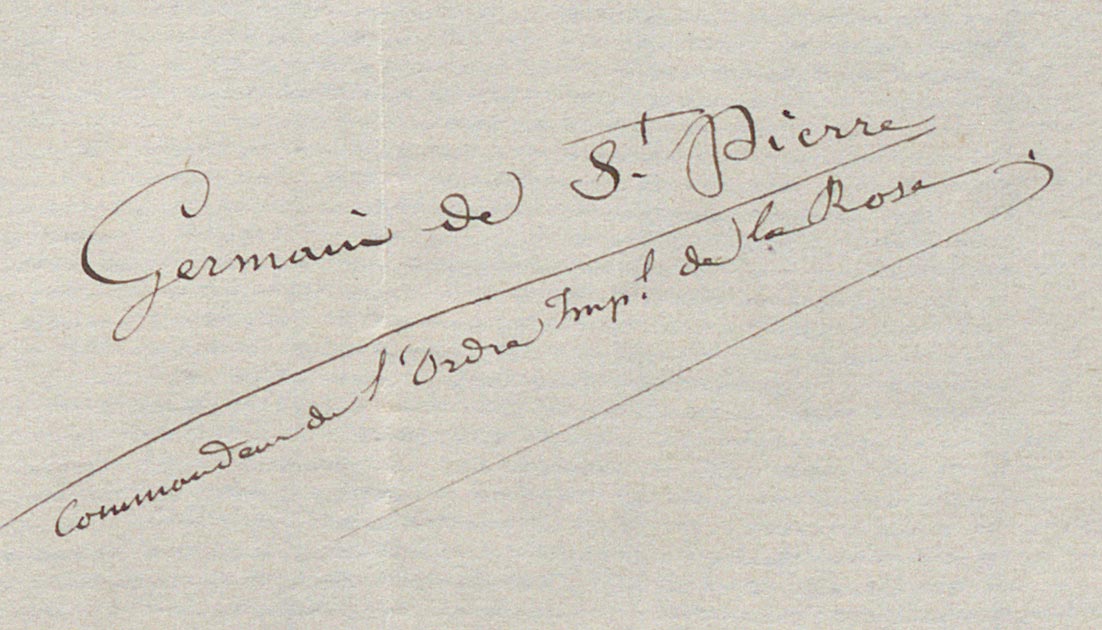 Germain de St. Pierre
Commandeur de l'Ordre Impl. de la Rose